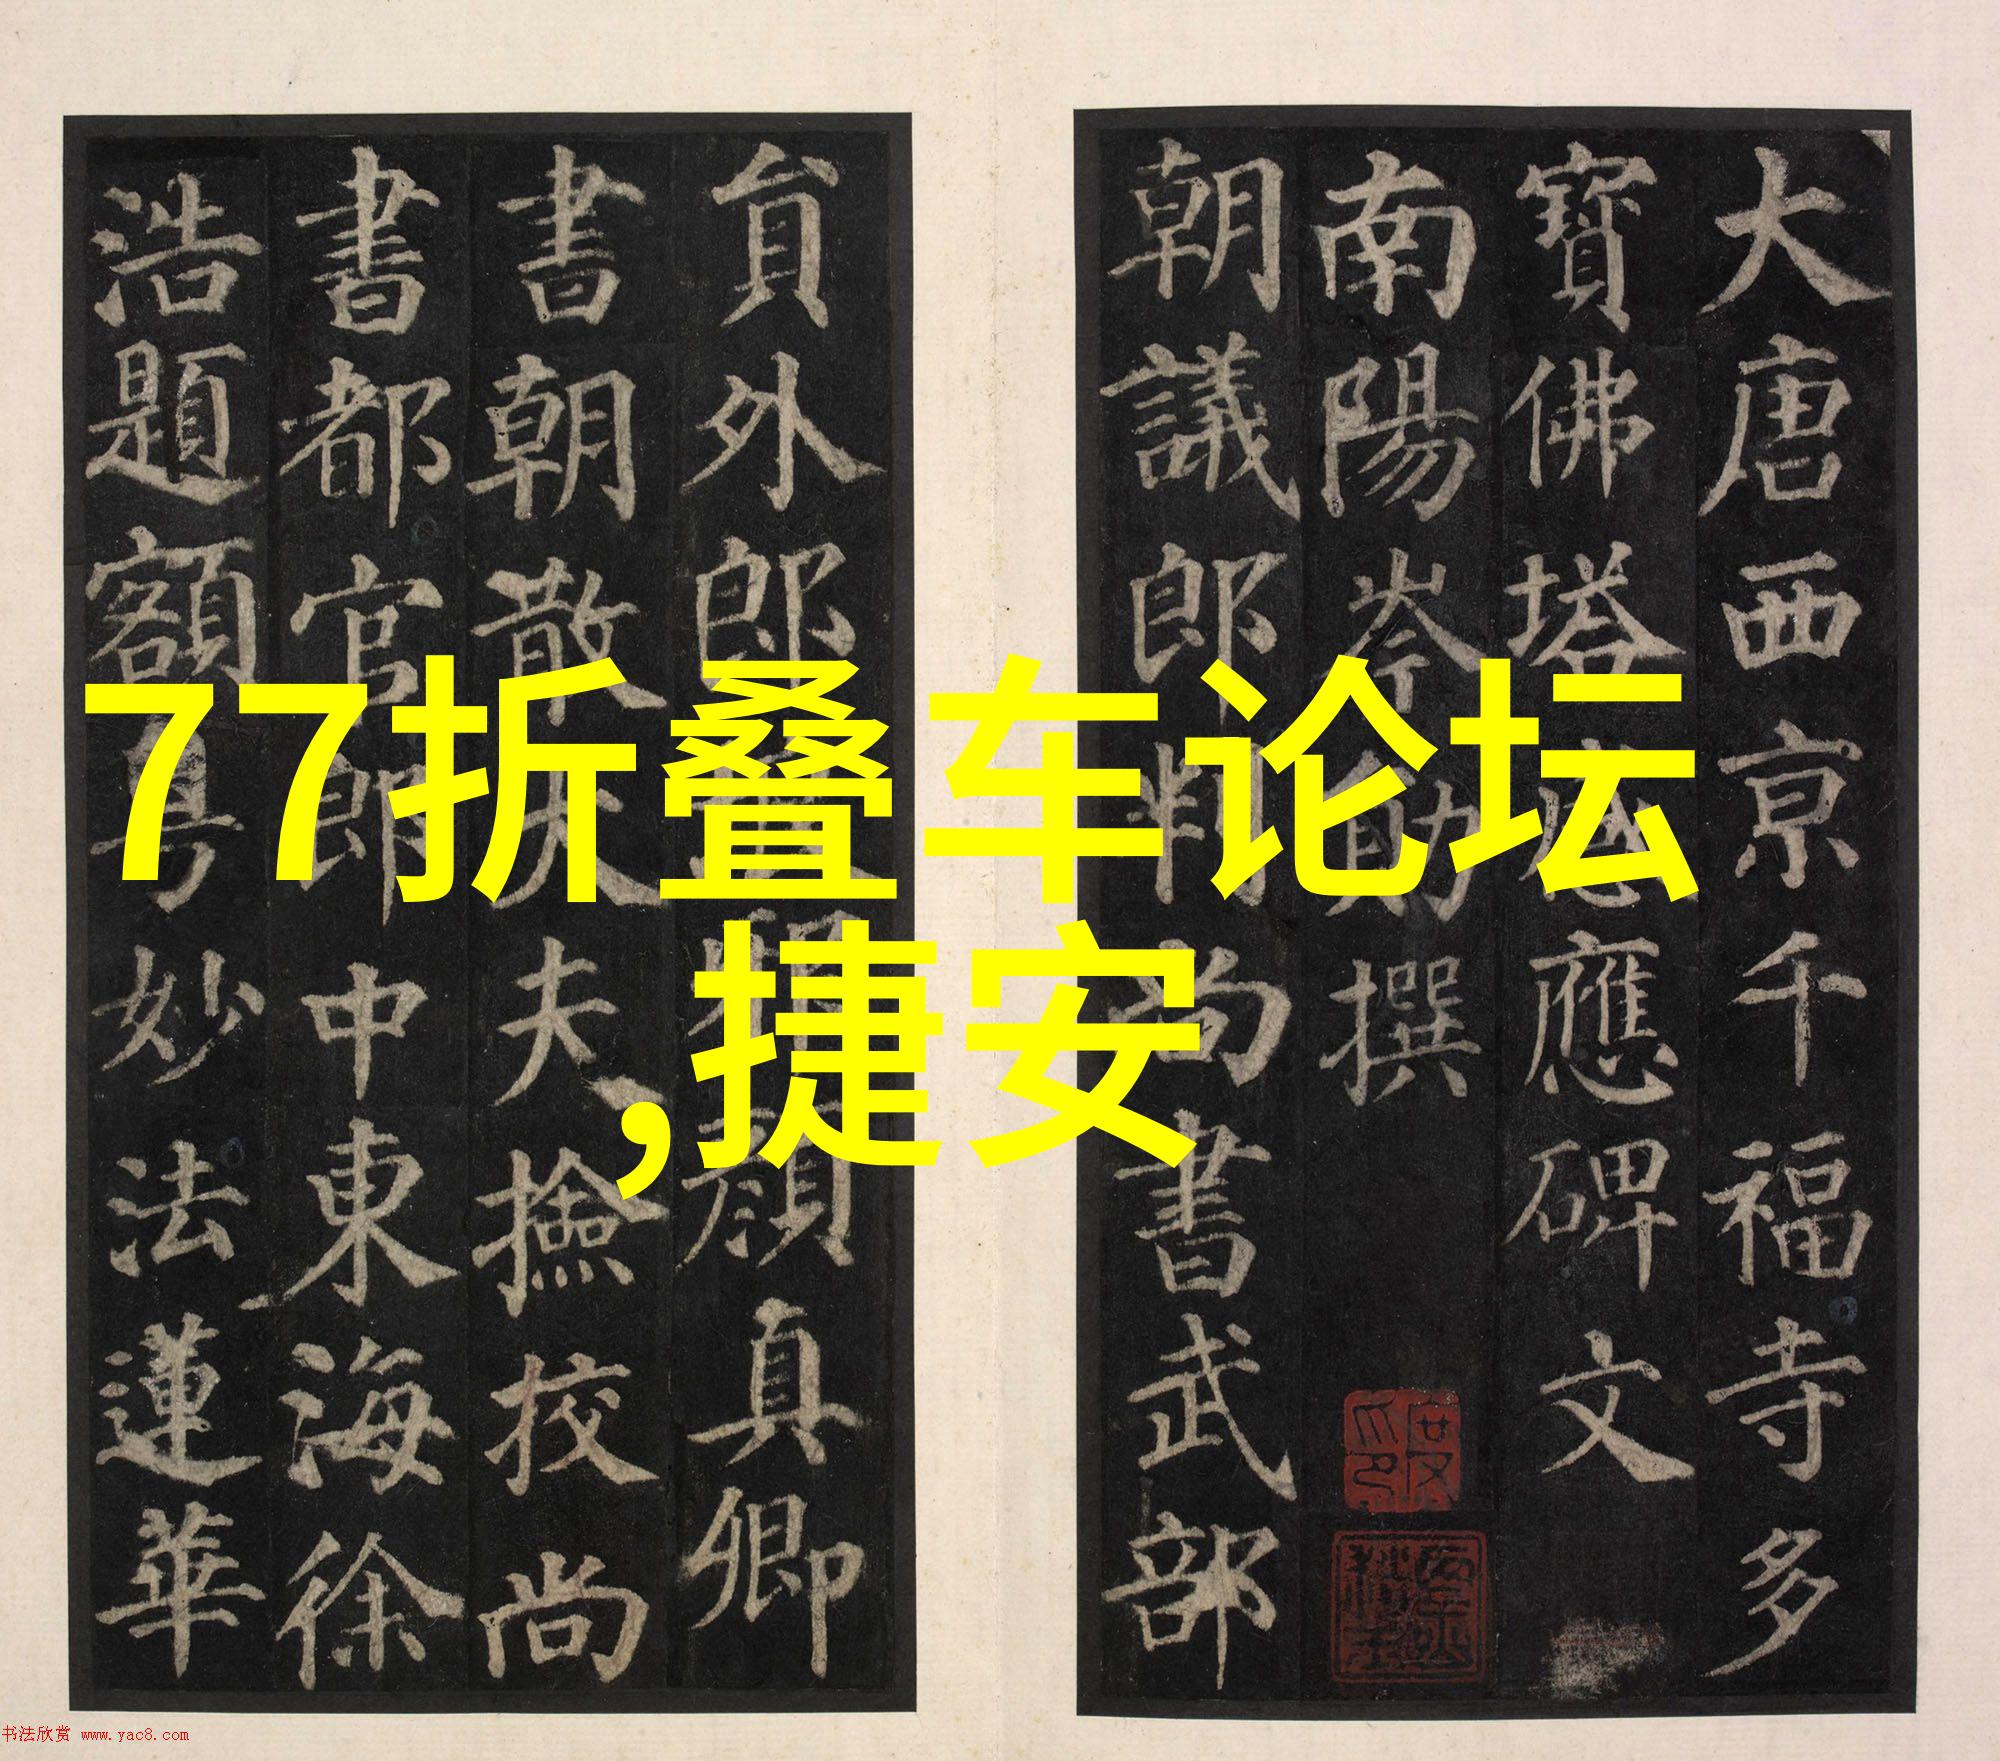 77折叠车论坛
,捷安
大唐西京千福寺多
寶佛塔感應碑文
南陽岑勛撰
朝議郎判尚書武部
貟外郎顏真卿
書朝散大夫撿校尚
書都官郎中東海徐
浩題額粤妙法蓮華
书法欣赏 www.yac8.com